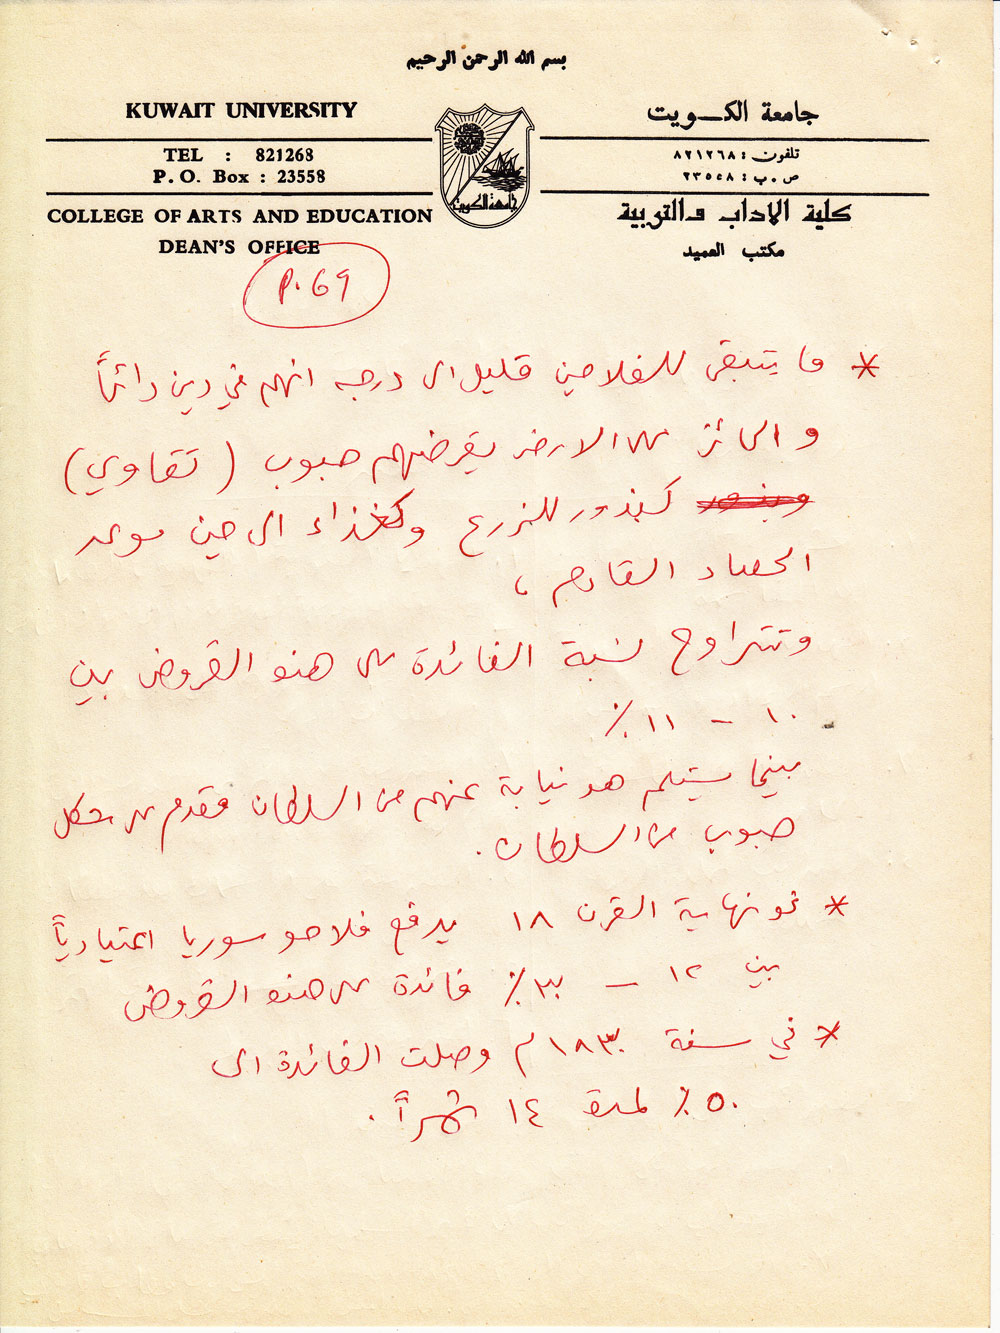 بسم الله الرحمن الرحيم
KUWAIT UNIVERSITY
جامعة الكويت
TEL : 821268
تلفون : ٨٢١٢٦٨
P. O. Box : 23558
ص . ب : ٢٣٥٥٨
COLLEGE OF ARTS AND EDUCATION
كلية الاداب والتربية
DEAN'S OFFICE
مكتب العميد
جامعة الكويت
P. 69
* ما يتبقى للفلاحين قليل الى درجه انهم في دين دائماً
والحائز على الارض يقرضهم حبوب (تقاوي)
وبذور كبذور للزرع وكغذاء الى حين موعد
الحصاد القادم ،
وتتراوح نسبة الفائدة على هذه القروض بين
١٠ - ١١ ٪
بينما يستلم هو نيابة عنهم من السلطان مقدم على شكل
حبوب من السلطان .
* نحو نهاية القرن ١٨ يدفع فلاحو سوريا اعتيادياً
بين ١٢ - ٣٠ ٪ فائدة على هذه القروض
* في سنة ١٨٣٠م وصلت الفائدة الى
٥٠ ٪ لمدة ١٤ شهراً .